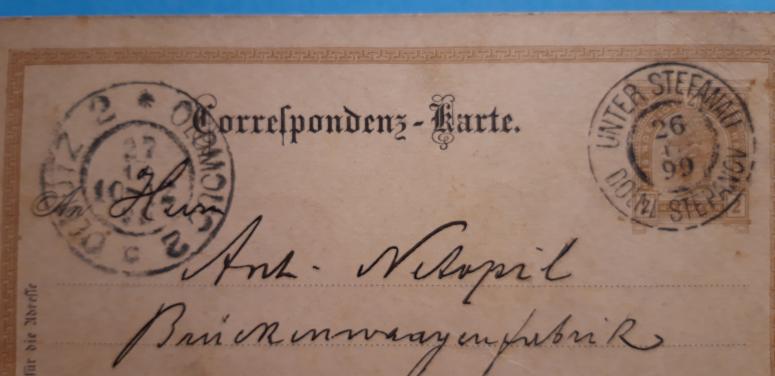 Correspondenz-Karte.
OLMÜTZ 2 * OLOMOUC 2
27
UNTER STEFANAU
26
99
DOLNÍ STEPANOV
2
An Herrn
Ant. Netopil
Brückenwaagenfabrik
für die Adresse